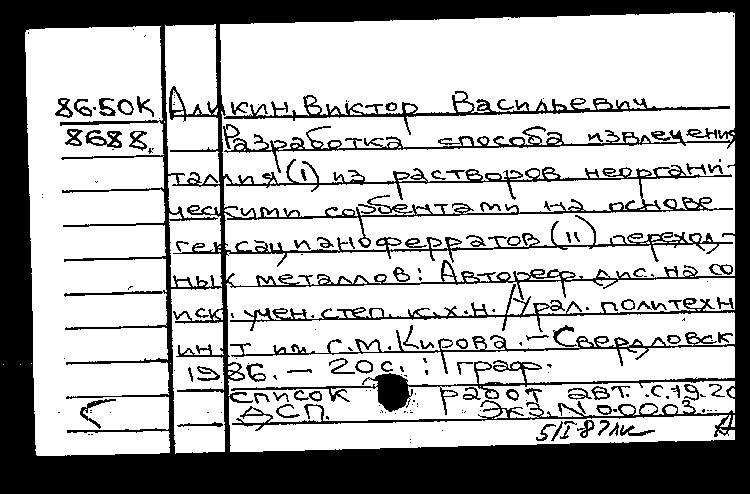 86-50К Аликин, Виктор Васильевич.
8688. Разработка способа извлечения
таллия (I) из растворов неоргани-
ческими сорбентами на основе
гексацианоферратов (II) переход-
ных металлов: Автореф. дис. на со
иск. учен. степ. к.х.н. / Урал. политехн
ин-т им. С.М. Кирова. - Свердловск
1986. - 20 с. : граф.
Список работ авт. с. 19-20
ДСП. Экз. N 00003.
5/I-87